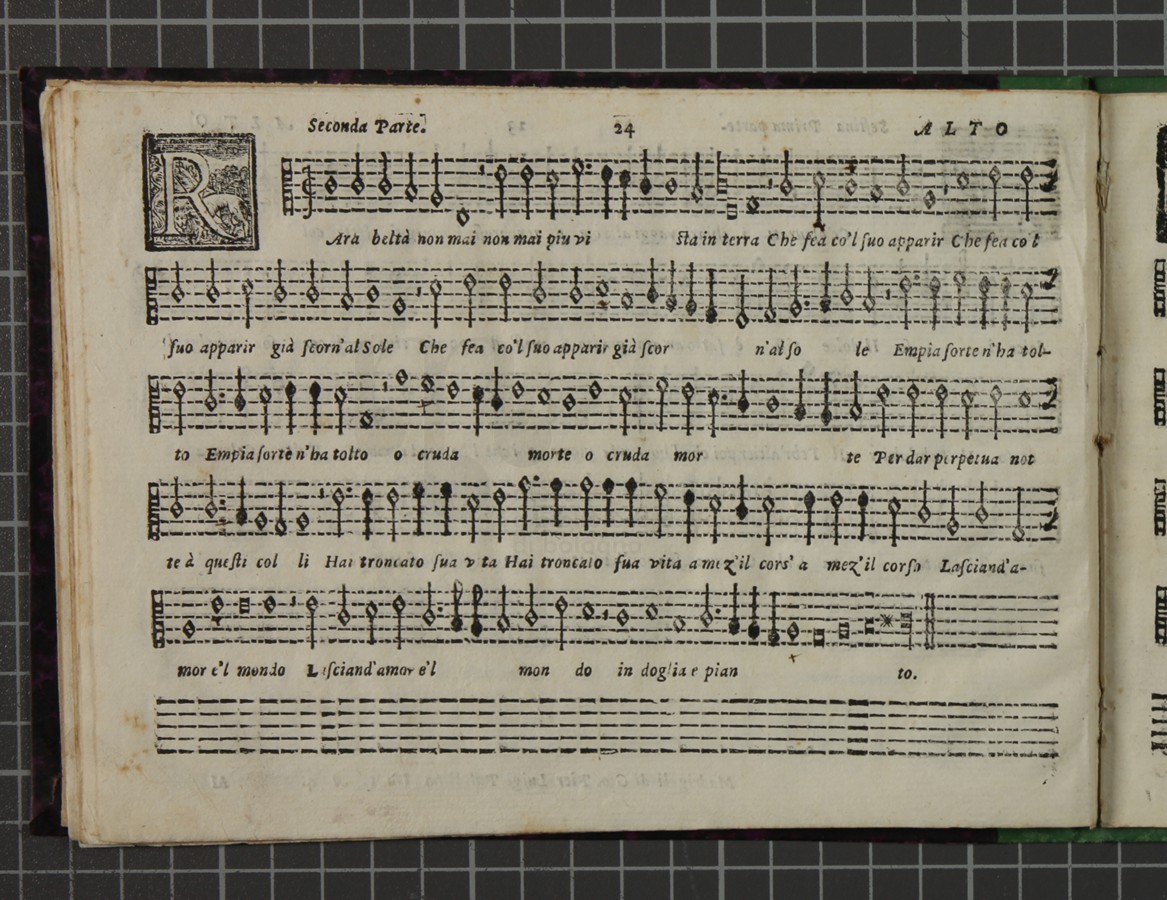 Seconda Parte. 24 ALTO
RAra beltà non mai non mai piu vi sta in terra Che fea co'l suo apparir Che fea co'l
suo apparir già scorn'al Sole Che fea co'l suo apparir già scor n'al so le Empia sorte n'ha tol-
to Empia sorte n'ha tolto o cruda morte o cruda mor te Per dar perpetua not
te à questi col li Hai troncato sua v ta Hai troncato sua vita a mez'il cors' a mez'il corso Lasciand'a-
mor e'l mondo Lasciand'amor e'l mon do in doglia e pian to.